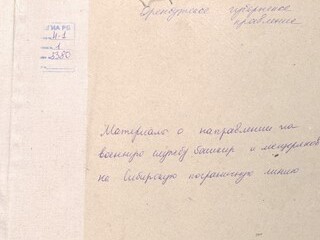 ЦГИА РБ
И-1
1
3350
Оренбургское губернское
правление
Материалы о направлении на
военную службу башкир и мещеряков
на Сибирскую пограничную линию